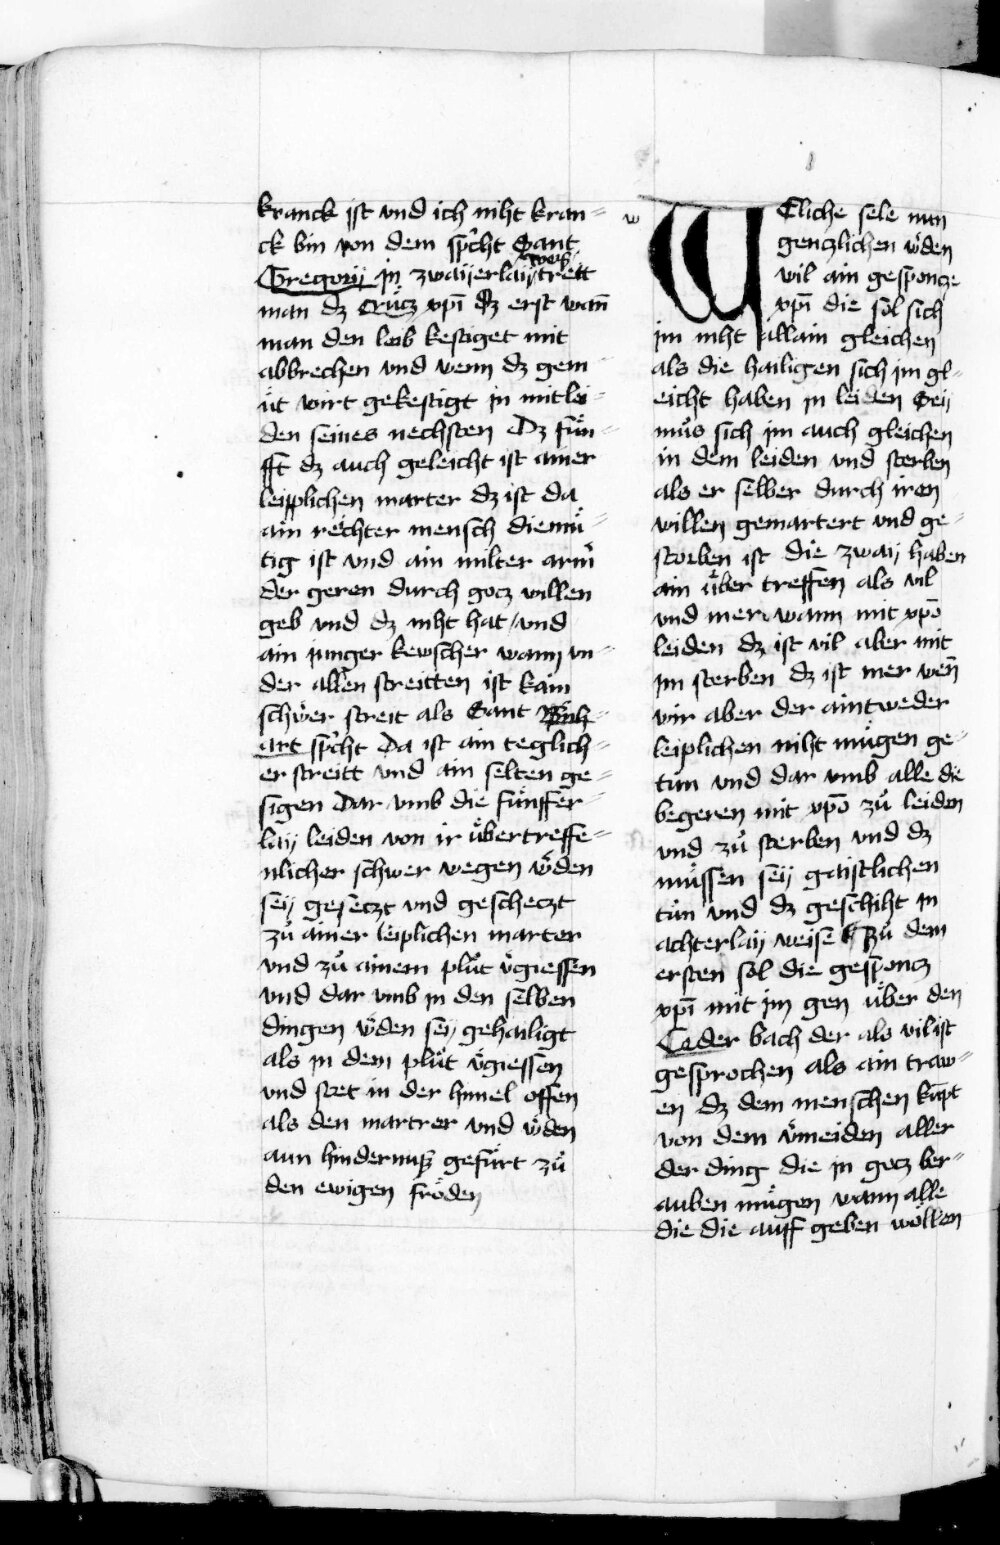 kranck ist vnd ich niht kran=
ck bin von dem sp̄cht Sant
Gregorij in zwaijerlaij weiß trett
man dz crücz xp̄i Dz erst wan̄
man den leib kestiget mit
abbrechen vnd wenn dz gem=
üt wirt gekestigt in mitlei=
den seines nechsten Dz fün=
fft dz auch geleicht ist ainer
leipplichen marter dz ist da
ain rechter mensch diemü=
tig ist vnd ain milter arm̄
der geren durch gocz willen
geb vnd dz niht hat / vnd
ain junger kewscher wann vn=
der allen streitten ist kain
schwer streit als Sant
art sp̄cht Da ist ain teglich=
er streitt vnd ain selten ge=
sigen Dar vmb die fünffer=
laij leiden von ir übertreffe=
nlicher schwer wegen v̄den
seij gesetzt vnd gescheczt
zů ainer leiplichen marter
vnd zů ainem plůt v̄giessen
vnd dar vmb in den selben
dingen v̄den seij gehailigt
als in dem plůt v̄giessen
vnd stet in der himel offen
als den martrer vnd v̄den
aun hindernuß gefürt zů
den ewigen fröden
w WEliche sele nun
genczlichen v̄den
wil ain gesponcze
xp̄i die sol sich
im niht allain gleichen
als die hailigen sich im gl=
eicht haben in leiden Seij
můs sich im auch gleichen
in dem leiden vnd sterben
als er selber durch iren
willen gemartert vnd ge=
storben ist die zwaij haben
ain über treffen als vil
vnd mer wann mit xp̄o
leiden dz ist vil aber mit
im sterben dz ist mer wen̄
wir aber der aintweder
leiplichen niht mügen ge=
tůn vnd dar vmb alle die
begeren mit xp̄o zů leiden
vnd zů sterben vnd dz
müssen seij gaistlichen
tůn vnd dz geschiht in
achterlaij weise Zů dem
ersten sol die gesponcz
xp̄i mit im gen über den
Ceder bach der als vil ist
gesprochen als ain traw=
en dz dem menschen kūpt
von dem v̄meiden aller
der ding die in gocz ber=
auben mügen wann alle
die die auff geben wöllen